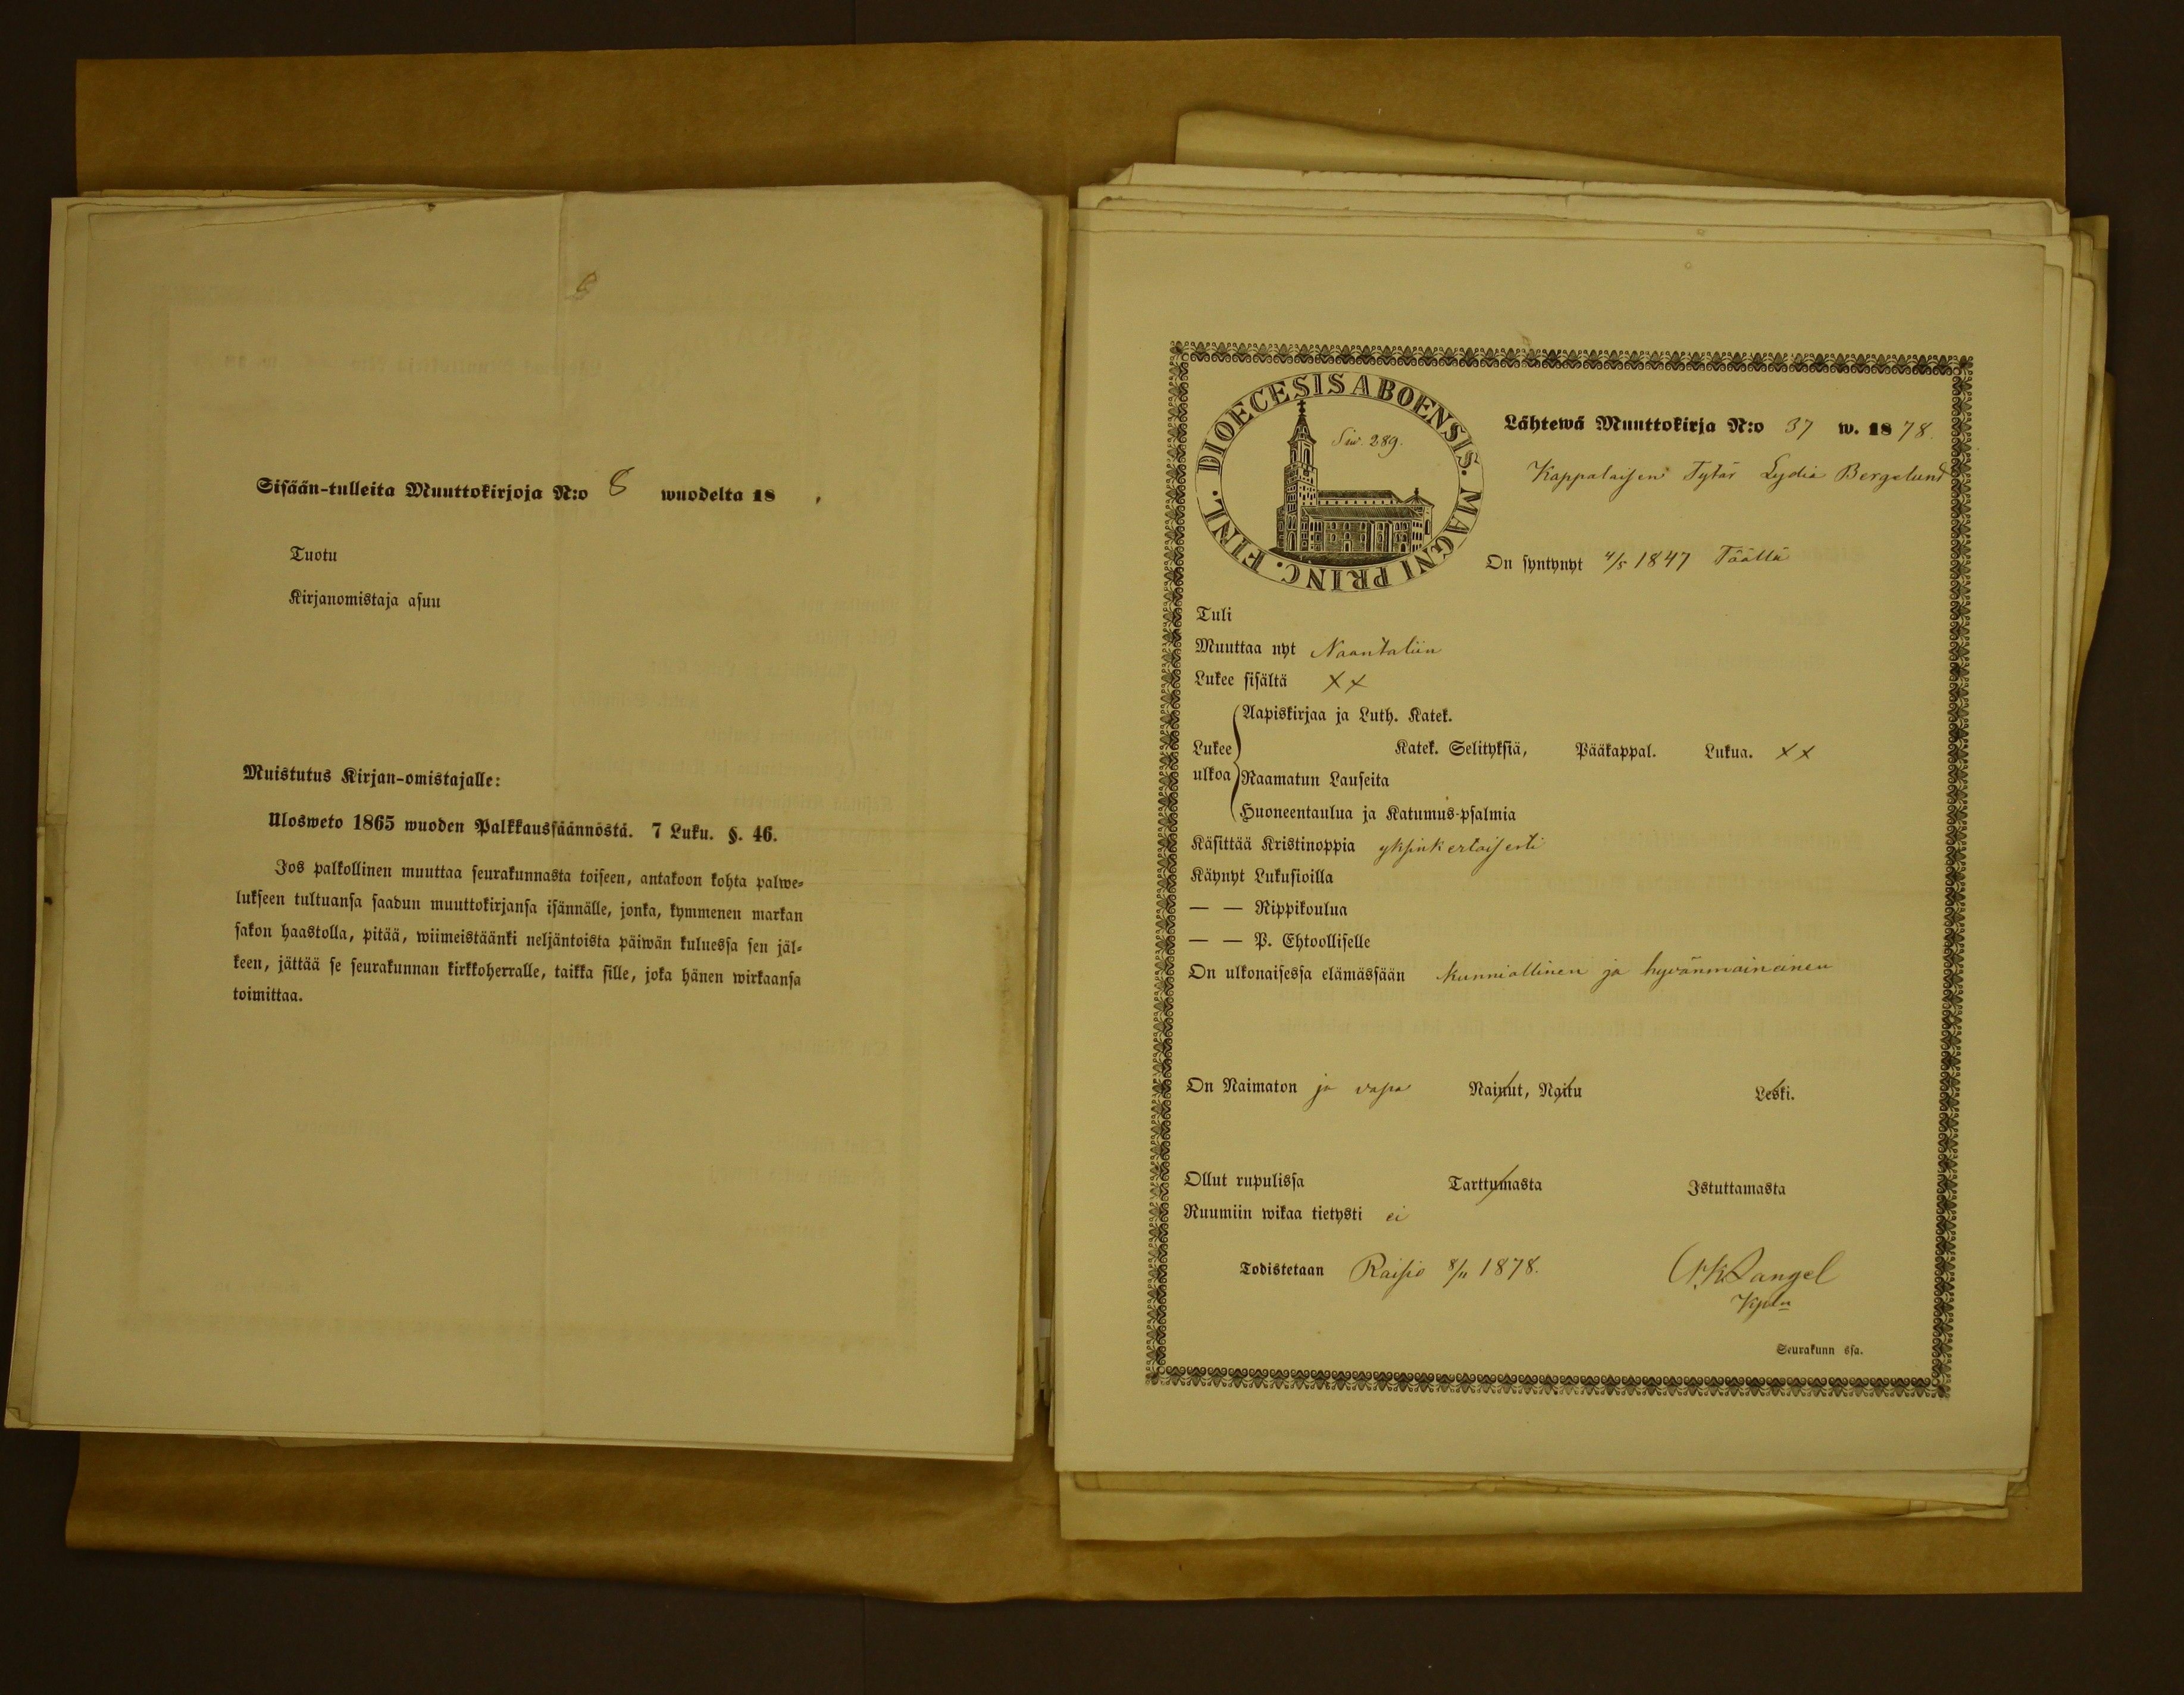 8
Sisään-tulleita Muuttokirjoja N:o 8 wuodelta 18 .
Tuotu
Kirjanomistaja asuu
Muistutus Kirjan-omistajalle:
Ulosweto 1865 wuoden Palkkaussäännöstä. 7 Luku. §. 46.
Jos palkollinen muuttaa seurakunnasta toiseen, antakoon kohta palwe-
lukseen tultuansa saadun muuttokirjansa isännälle, jonka, kymmenen markan
sakon haastolla, pitää, wiimeistäänki neljäntoista päiwän kuluessa sen jäl-
keen, jättää se seurakunnan kirkkoherralle, taikka sille, joka hänen wirkaansa
toimittaa.
DIOECESIS ABOENSIS. MAGNI PRINC. FINL.
Siv. 289.
Lähtewä Muuttokirja N:o 37 w. 1878.
Kappalaisen Tytär Lydia Bergelund
On syntynyt 4/5 1847 Täällä
Tuli
Muuttaa nyt Naantaliin
Lukee sisältä ××
Lukee ulkoa
Aapiskirjaa ja Luth. Katek.
Katek. Selityksiä, Pääkappal. Lukua. ××
Raamatun Lauseita
Huoneentaulua ja Katumus-psalmia
Käsittää Kristinoppia yksinkertaisesti
Käynyt Lukusioilla
— — Rippikoulua
— — P. Ehtoolliselle
On ulkonaisessa elämässään kunniallinen ja hyvänmaineinen
On Naimaton ja vapa Nainut, Naitu Leski.
Ollut rupulissa Tarttumasta Istuttamasta
Ruumiin wikaa tietysti ei
Todistetaan Raisio 8/11 1878. Langel
Kpln
Seurakunn ssa.